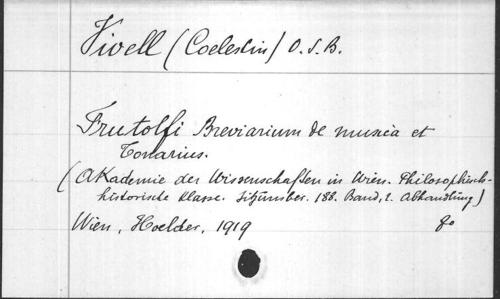 Vivell (Coelestin) O.S.B.
Frutolfi Breviarium de musica et
Tonarius.
(Akademie der Wissenschaften in Wien. Philosophisch-
historische Klasse. Sitzunsber. 188. Band, 2. Abhandlung)
Wien, Hoelder, 1919 8o